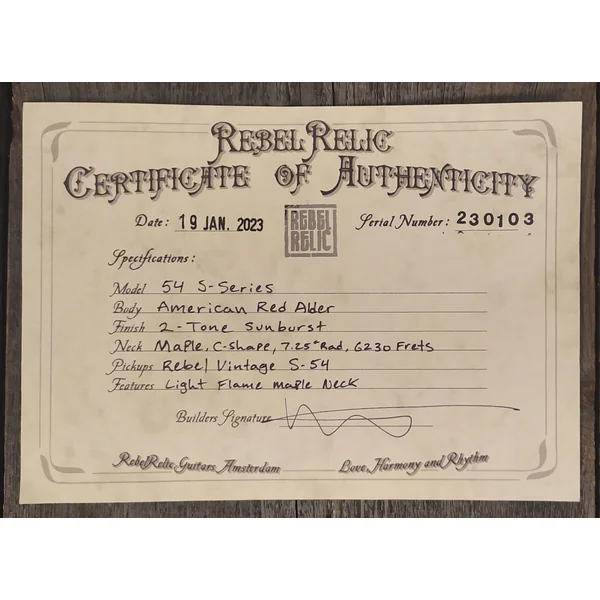 REBEL RELIC
CERTIFICATE OF AUTHENTICITY
Date: 19 JAN. 2023 REBEL RELIC Serial Number: 230103
Specifications:
Model 54 S-Series
Body American Red Alder
Finish 2-Tone Sunburst
Neck Maple, C-shape, 7.25" Rad, 6230 Frets
Pickups Rebel Vintage S-54
Features Light Flame maple Neck
Builders Signature
RebelRelic Guitars, Amsterdam Love, Harmony and Rhythm